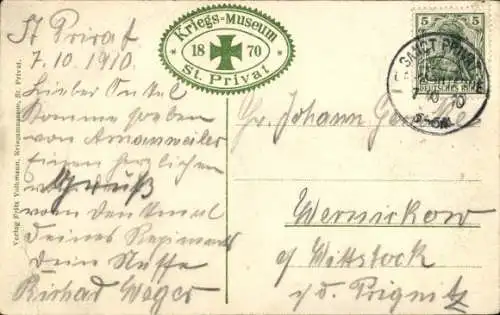 St Privat
7.10.1910.
Lieber Onkel
komme soeben
von Amanweiler
Einen herzlichen
Gruß
von Denkmal
Deines Regiments
Dein Neffe
Richard Weger
Kriegs-Museum
18 70
St. Privat
5 5
DEUTSCHES REICH
SANCT PRIVAT
7 10 10
Hr. Johann
Wernickow
b/ Wittstock
a/d. Prignitz
Verlag Fritz Volkmann, Kriegsmuseum, St. Privat.